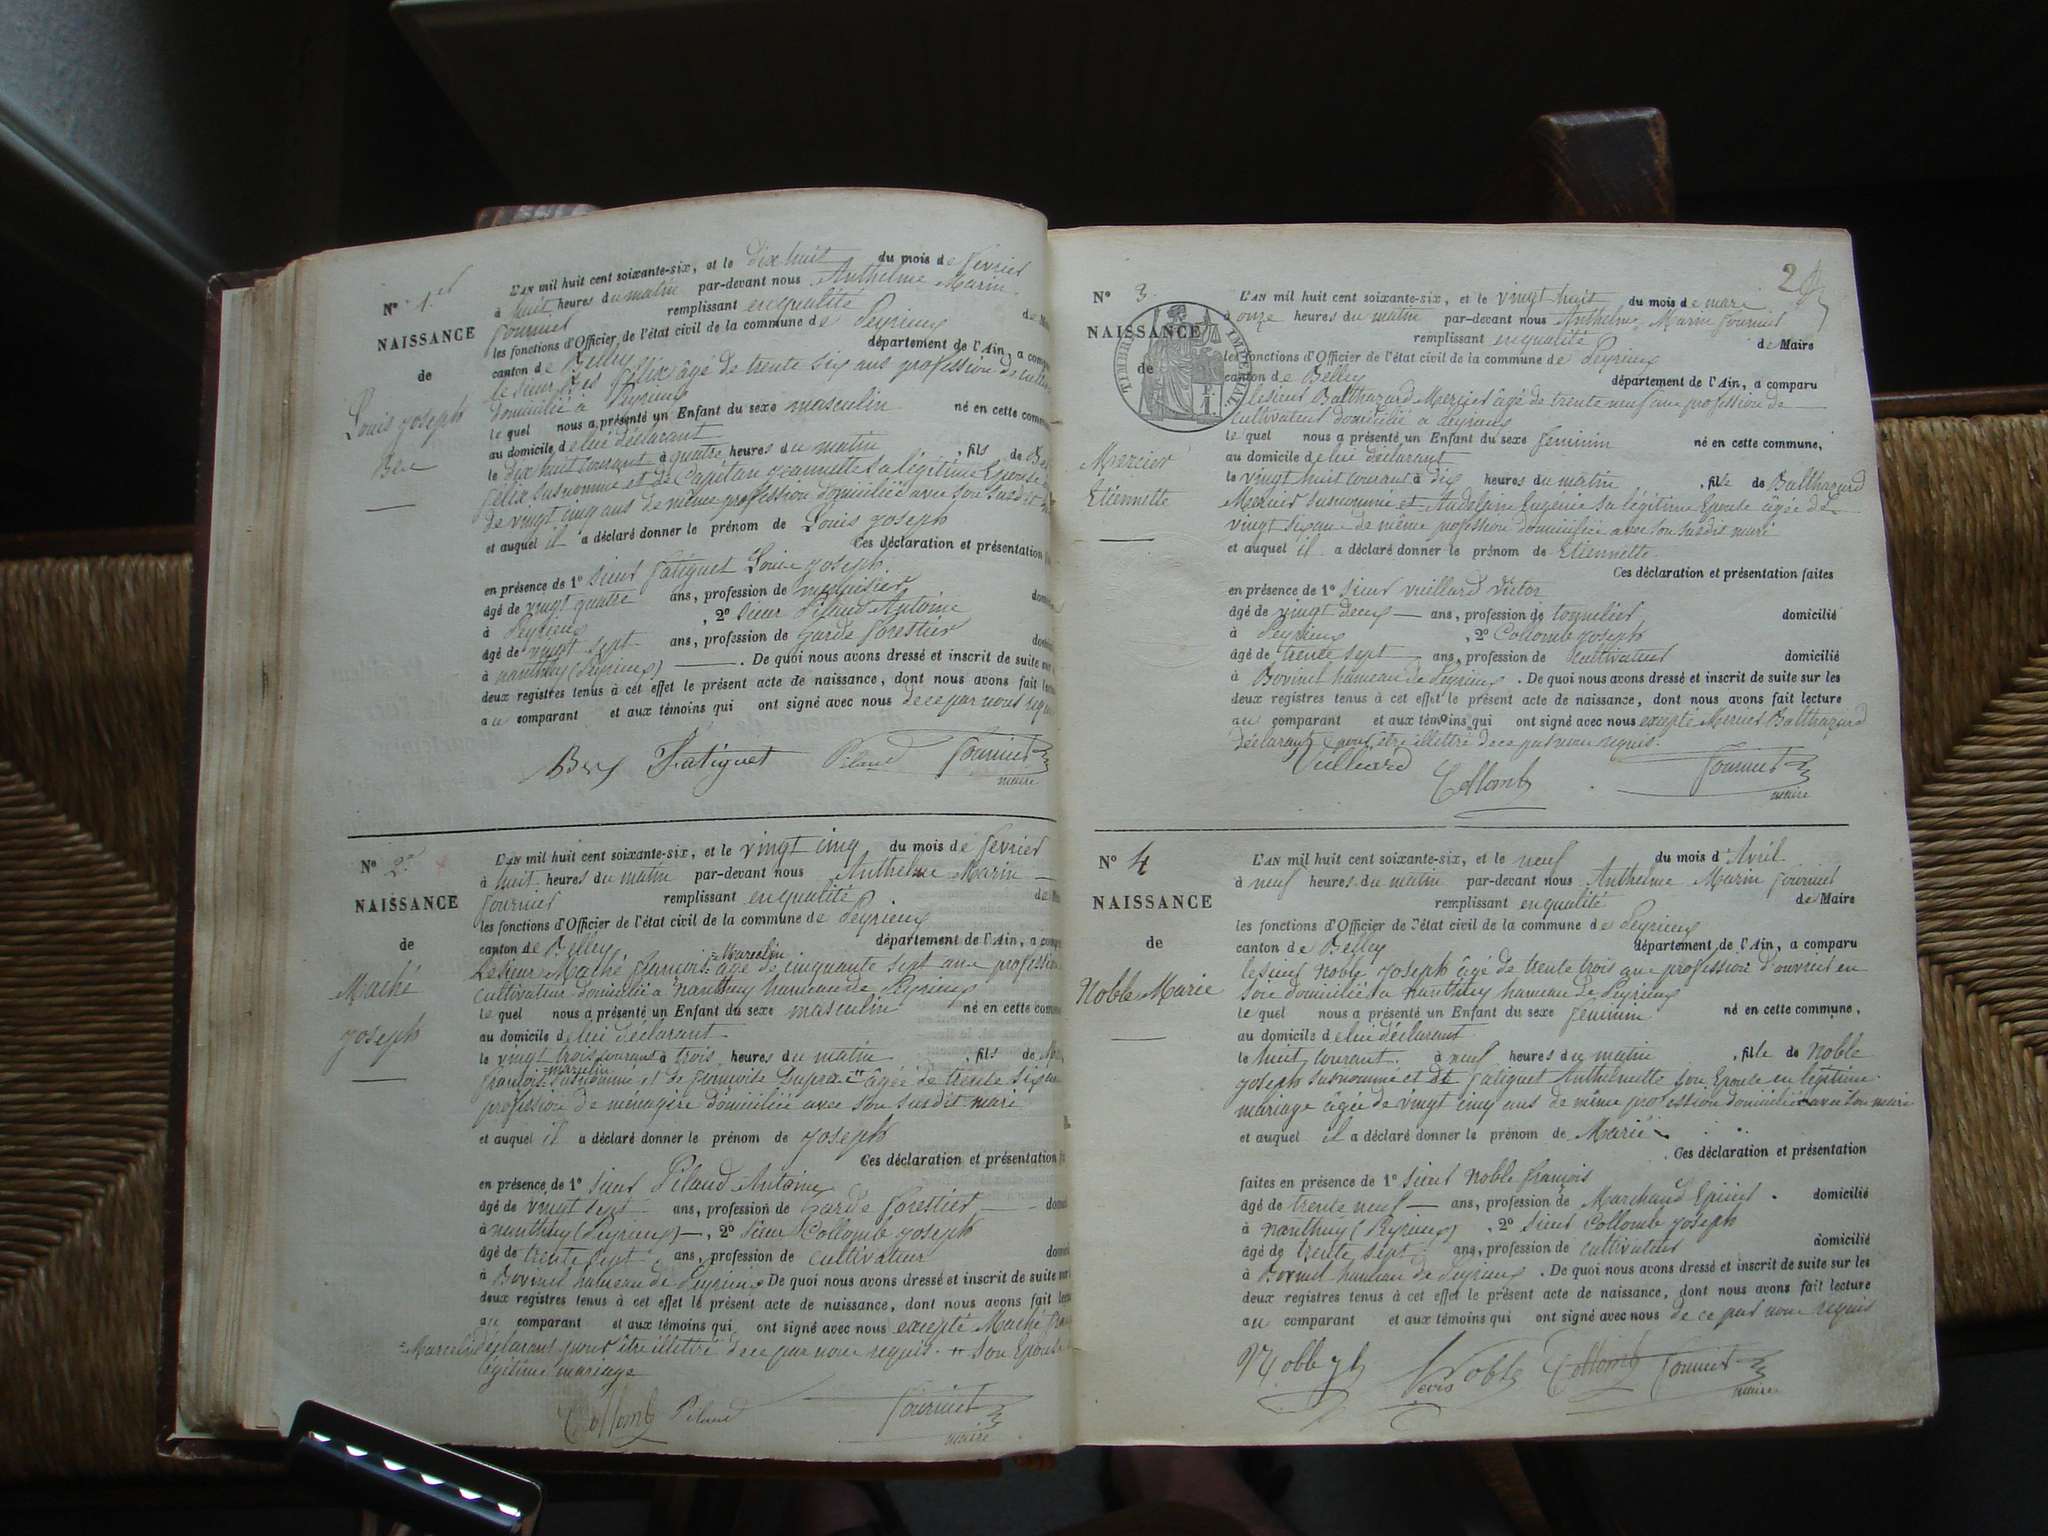 N° 1er
NAISSANCE
de
Louis Joseph
Bex
L'AN mil huit cent soixante-six, et le dix huit du mois de février
à huit heures du matin par-devant nous Anthelme Marin
Fournier remplissant en qualité de
les fonctions d'Officier de l'état civil de la commune de Peyrieux
canton de Belley département de l'Ain, a
le sieur Félix âgé de trente six ans profession de
domicilié à Peyrieux
le quel nous a présenté un Enfant du sexe masculin né en cette
au domicile de lui déclarant
le dix huit courant à quatre heures du matin , fils de
Félix susnommé et de Capitan Jeannette sa légitime Epouse
de vingt cinq ans de même profession domiciliée avec son susdit
et auquel il a déclaré donner le prénom de Louis Joseph
Ces déclaration et présentation
en présence de 1° sieur Fatiguet Louis Joseph
âgé de vingt quatre ans, profession de menuisier
à Peyrieux , 2° sieur Pilaud Antoine
âgé de vingt sept ans, profession de Garde forestier
à nanthuy (Peyrieux) . De quoi nous avons dressé et inscrit de suite
deux registres tenus à cet effet le présent acte de naissance, dont nous avons fait
au comparant et aux témoins qui ont signé avec nous de ce par nous
Bex Fatiguet Pilaud Fournier
maire
N° 2
NAISSANCE
de
Maché
Joseph
L'AN mil huit cent soixante-six, et le vingt cinq du mois de février
à huit heures du matin par-devant nous Anthelme Marin
Fournier remplissant en qualité de
les fonctions d'Officier de l'état civil de la commune de Peyrieux
canton de Belley département de l'Ain, a
= Marcelin
Le sieur Maché François = âgé de cinquante sept ans
cultivateur domicilié à nanthuy hameau de Peyrieux
le quel nous a présenté un Enfant du sexe masculin né en cette
au domicile de lui déclarant
le vingt trois courant à trois heures du matin , fils de
= marcelin
François = susnommé et de âgée de trente six
profession de ménagère domiciliée avec son susdit mari
et auquel il a déclaré donner le prénom de Joseph
Ces déclaration et présentation
en présence de 1° sieur Pilaud Antoine
âgé de vingt sept ans, profession de Garde forestier
à nanthuy (Peyrieux) , 2° sieur Collomb Joseph
âgé de trente sept ans, profession de cultivateur
à Bovinel hameau de Peyrieux De quoi nous avons dressé et inscrit de suite
deux registres tenus à cet effet le présent acte de naissance, dont nous avons fait
au comparant et aux témoins qui ont signé avec nous excepté Maché
= Marcelin déclarant pour être illettré de ce par nous requis. son Epouse
légitime mariage
Collomb Pilaud Fournier
maire
2
N° 3
NAISSANCE
de
TIMBRE IMPÉRIAL
Mercier
Etiennette
L'AN mil huit cent soixante-six, et le vingt huit du mois de mars
à onze heures du matin par-devant nous Anthelme Marin Fournier
remplissant en qualité de Maire
les fonctions d'Officier de l'état civil de la commune de Peyrieux
canton de Belley département de l'Ain, a comparu
le sieur Balthazard Mercier âgé de trente neuf ans profession de
cultivateur domicilié à Peyrieux
le quel nous a présenté un Enfant du sexe féminin né en cette commune,
au domicile de lui déclarant
le vingt huit courant à dix heures du matin , fille de Balthazard
Mercier susnommé et Eugénie sa légitime Epouse âgée de
vingt six ans de même profession domiciliée avec son susdit mari
et auquel il a déclaré donner le prénom de Etiennette.
Ces déclaration et présentation faites
en présence de 1° sieur Vuillard Victor
âgé de vingt deux ans, profession de tonnelier domicilié
à Peyrieux , 2° Collomb Joseph
âgé de trente sept ans, profession de cultivateur domicilié
à Bovinel hameau de Peyrieux . De quoi nous avons dressé et inscrit de suite sur les
deux registres tenus à cet effet le présent acte de naissance, dont nous avons fait lecture
au comparant et aux témoins qui ont signé avec nous excepté Mercier Balthazard
déclarant pour être illettré de ce par nous requis.
Vuillard Collomb Fournier
maire
N° 4
NAISSANCE
de
Noble Marie
L'AN mil huit cent soixante-six, et le neuf du mois d'Avril
à neuf heures du matin par-devant nous Anthelme Marin Fournier
remplissant en qualité de Maire
les fonctions d'Officier de l'état civil de la commune de Peyrieux
canton de Belley département de l'Ain, a comparu
le sieur Noble Joseph âgé de trente trois ans profession d'ouvrier en
soie domicilié à nanthuy hameau de Peyrieux
le quel nous a présenté un Enfant du sexe féminin né en cette commune,
au domicile de lui déclarant
le huit courant à neuf heures du matin , fille de Noble
Joseph susnommé et de Fatiguet Anthelmette son Epouse en légitime
mariage âgée de vingt cinq ans de même profession domiciliée avec son mari
et auquel il a déclaré donner le prénom de Marie
Ces déclaration et présentation
faites en présence de 1° sieur Noble François
âgé de trente neuf ans, profession de Marchand Epicier domicilié
à nanthuy (Peyrieux) , 2° sieur Collomb Joseph
âgé de trente sept ans, profession de cultivateur domicilié
à Bovinel hameau de Peyrieux . De quoi nous avons dressé et inscrit de suite sur les
deux registres tenus à cet effet le présent acte de naissance, dont nous avons fait lecture
au comparant et aux témoins qui ont signé avec nous de ce par nous requis
Noble Collomb Fournier
maire